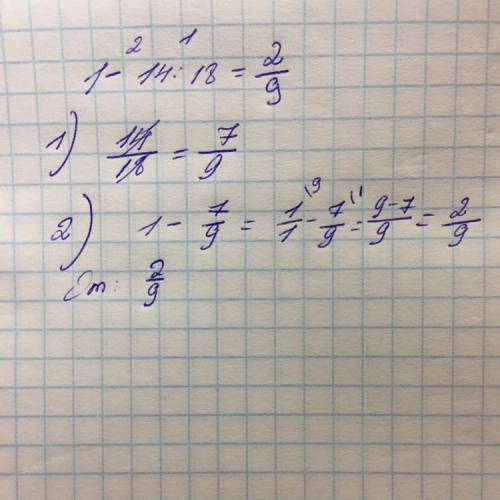 2 1
1 - 14 : 18 = 2/9
1) 14/18 = 7/9
2) 1 - 7/9 = 1/1 \9 - 7/9 \1 = 9-7/9 = 2/9
От: 2/9